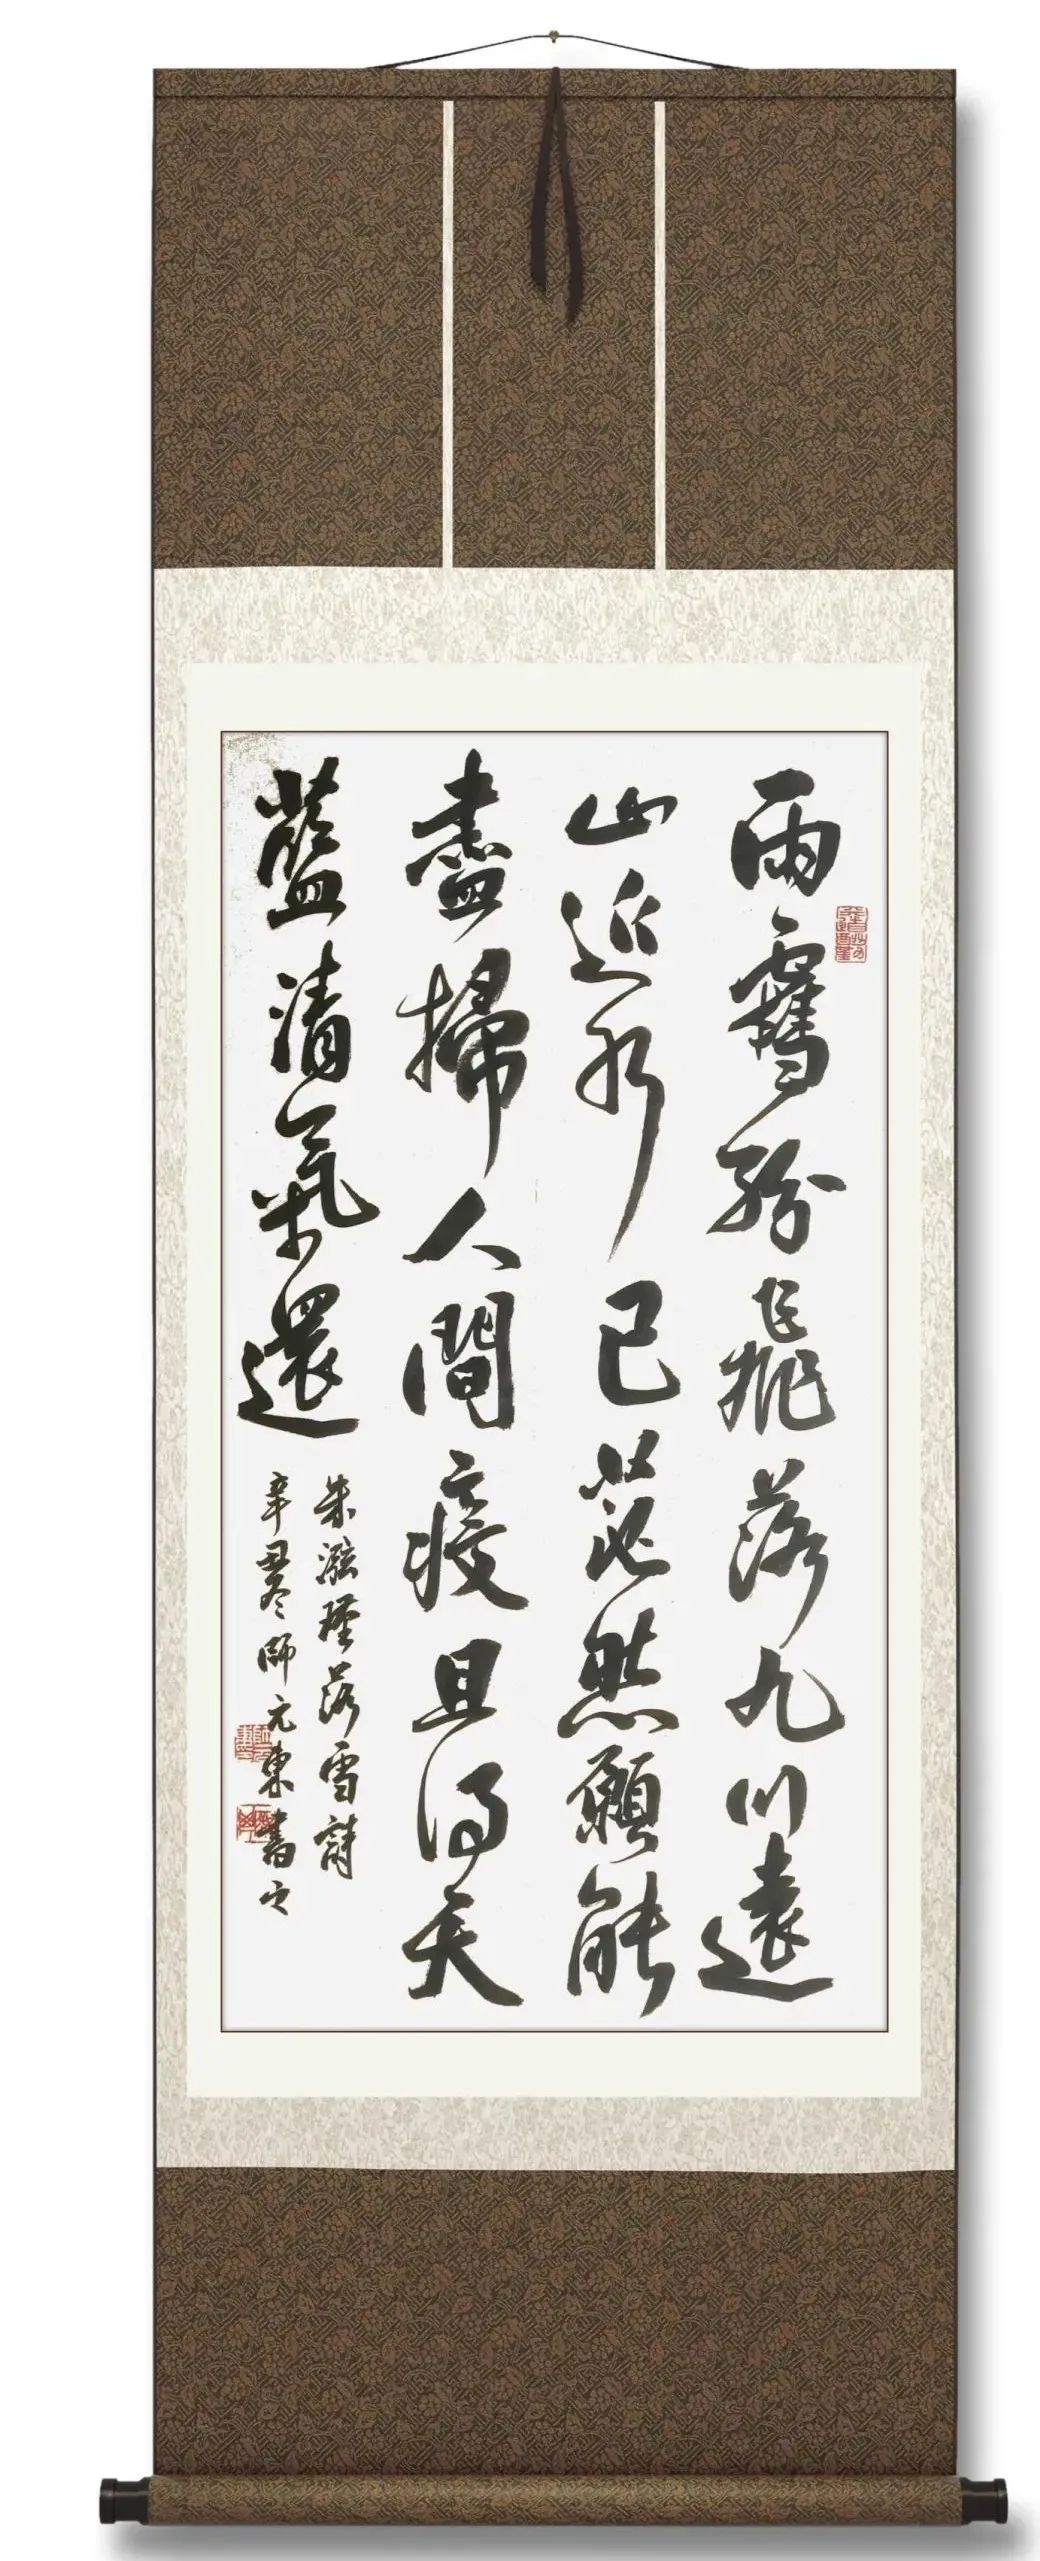 雨紛飛落九川遠
山近水已茫然願能
盡掃人間疫且得天
藍清氣還
朱瑾落雪詩
辛丑冬師元東書之